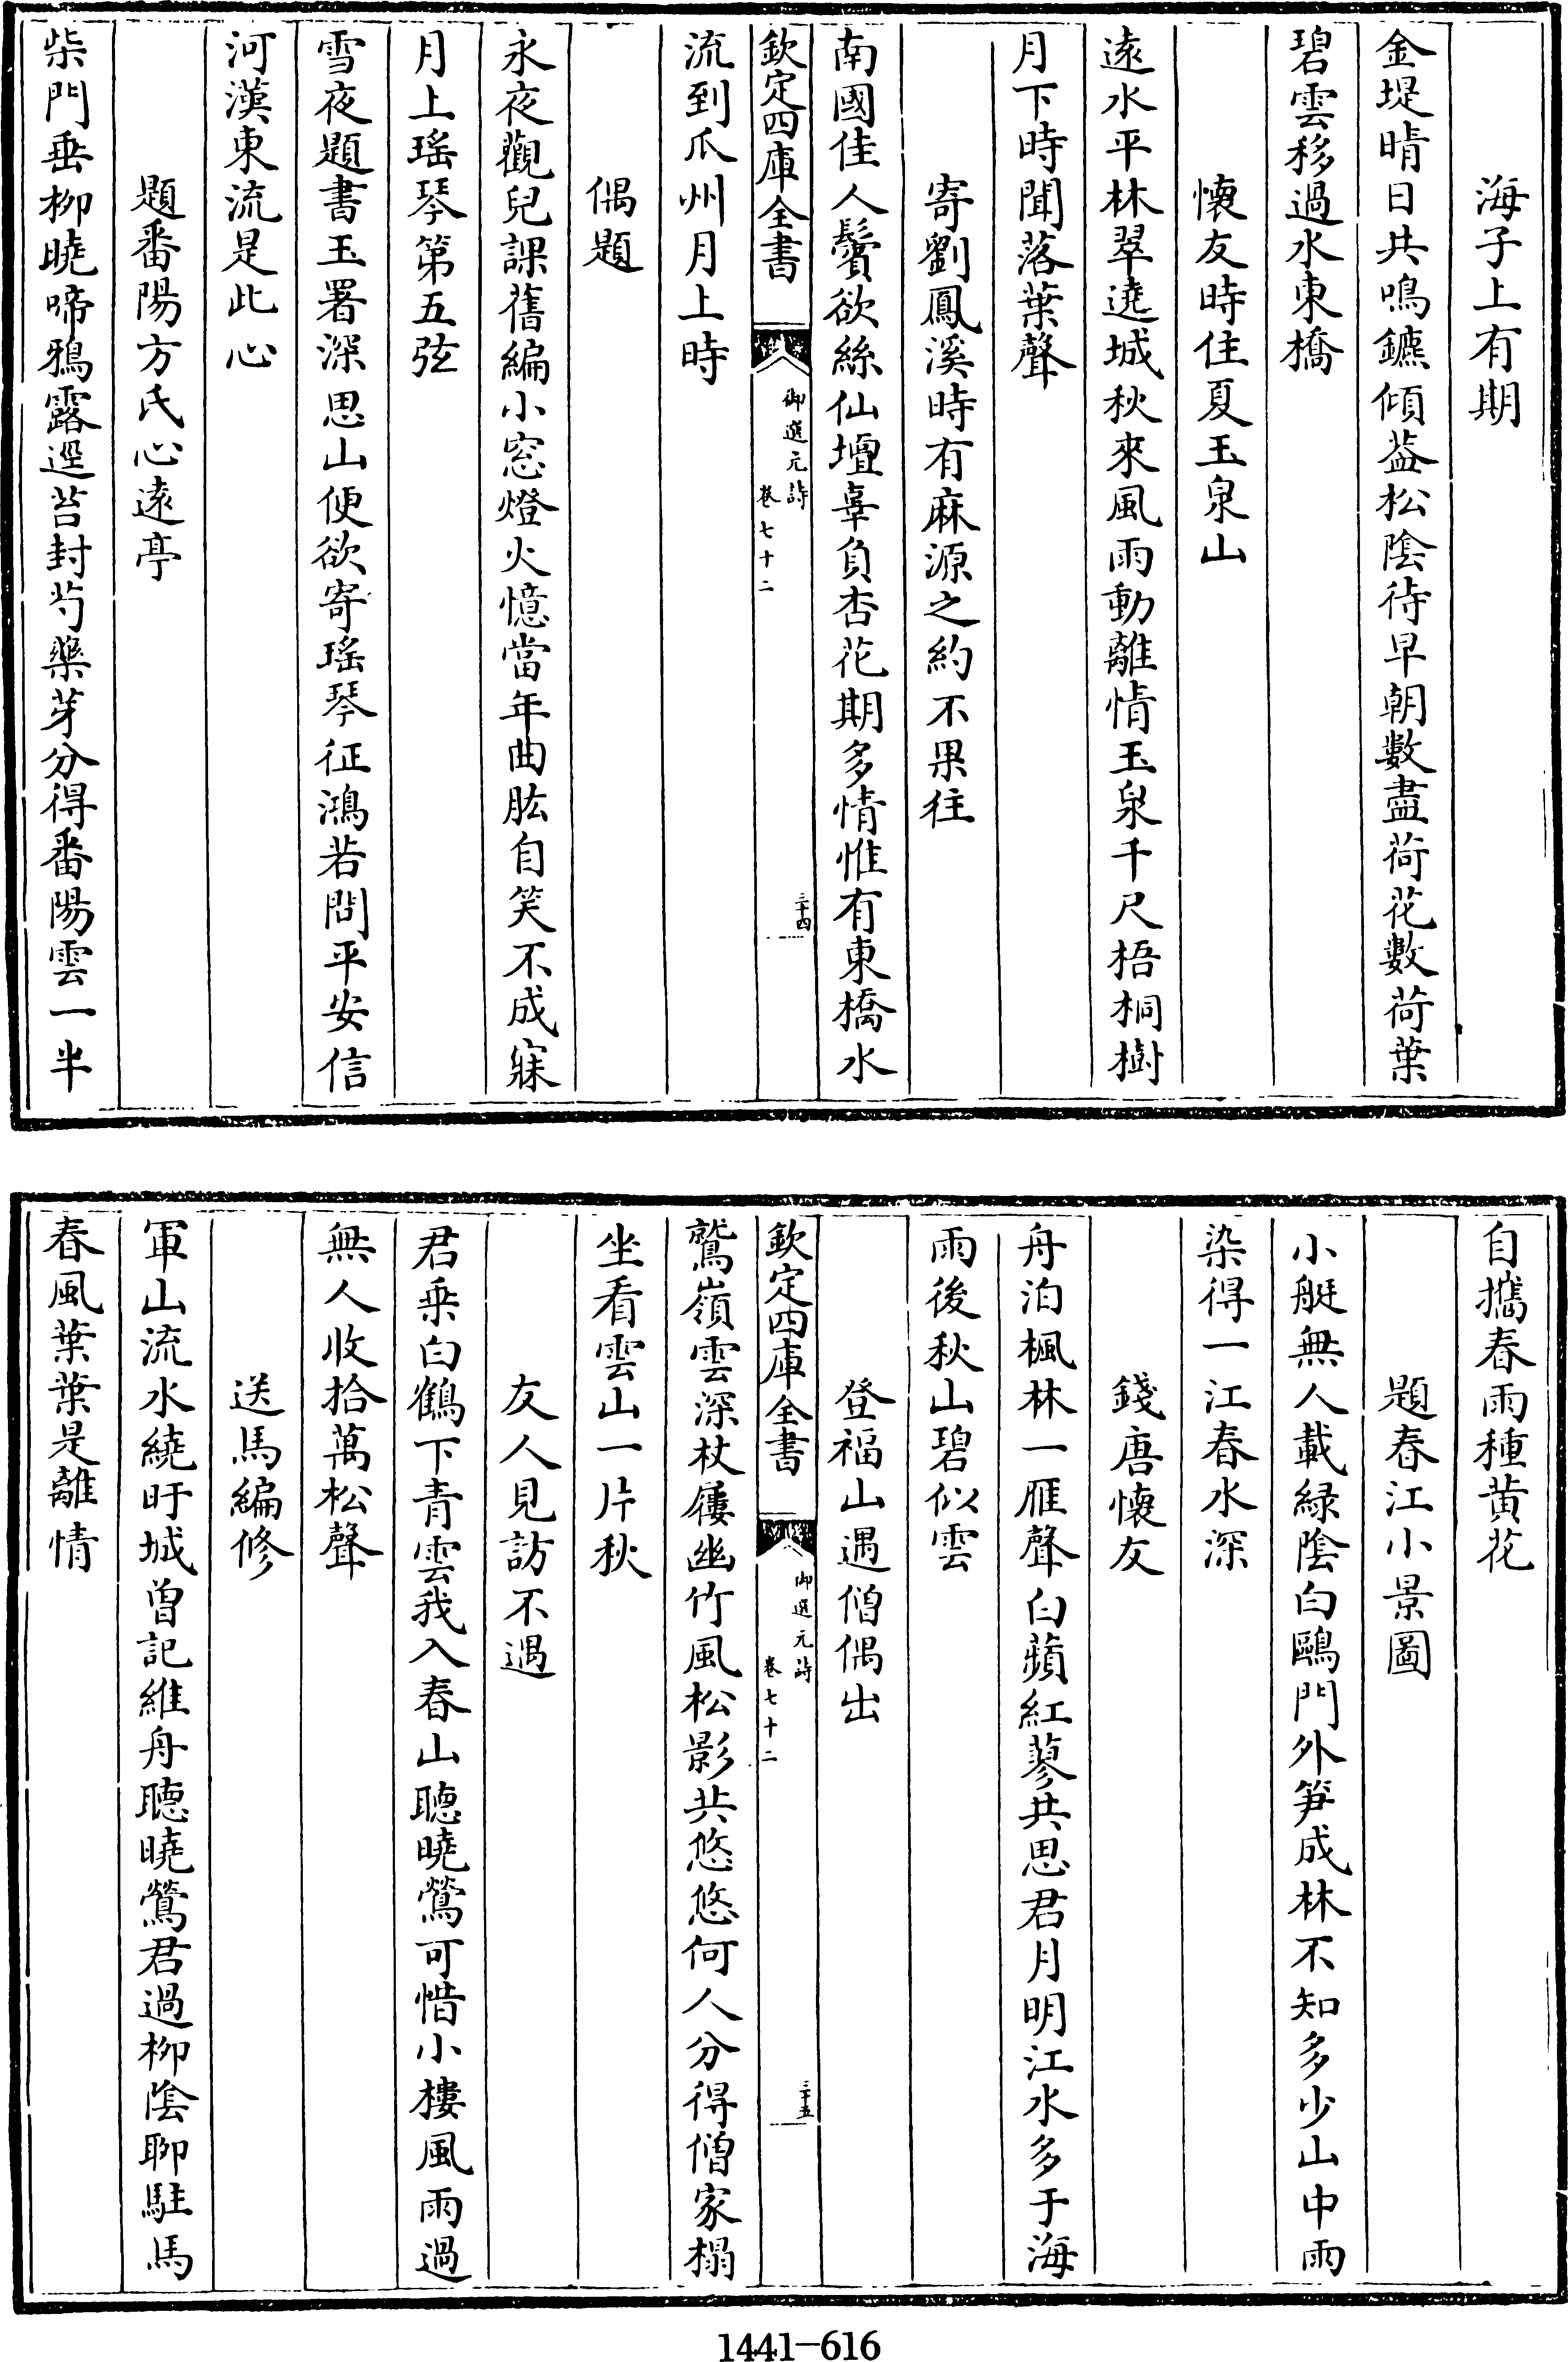 海子上有期
金堤晴日共鳴鑣傾葢松陰待早朝數盡荷花數荷葉
碧雲移過水東橋
懷友時住夏玉泉山
遠水平林翠遶城秋來風雨動離情玉泉千尺梧桐樹
月下時聞落葉聲
寄劉鳳溪時有麻源之約不果往
南國佳人鬢欲絲仙壇辜負杏花期多情惟有東橋水
欽定四庫全書
御選元詩
卷七十二
三十四
流到爪州月上時
偶題
永夜觀兒課舊編小窓燈火憶當年曲肱自笑不成寐
月上瑤琴第五弦
雪夜題書玉署深思山便欲寄瑤琴征鴻若問平安信
河漢東流是此心
題番陽方氏心遠亭
柴門垂柳曉啼鴉露逕苔封芍藥芽分得番陽雲一半
自攜春雨種黄花
題春江小景圖
小艇無人載緑陰白鷗門外笋成林不知多少山中雨
染得一江春水深
錢唐懷友
舟泊楓林一雁聲白蘋紅蓼共思君月明江水多于海
雨後秋山碧似雲
登福山遇僧偶出
欽定四庫全書
御選元詩
卷七十二
三十五
鷲嶺雲深杖屨幽竹風松影共悠悠何人分得僧家榻
坐看雲山一片秋
友人見訪不遇
君乗白鶴下青雲我入春山聽曉鶯可惜小樓風雨過
無人收拾萬松聲
送馬編修
軍山流水繞盱城曽記維舟聽曉鶯君過柳陰聊駐馬
春風葉葉是離情
1441-616